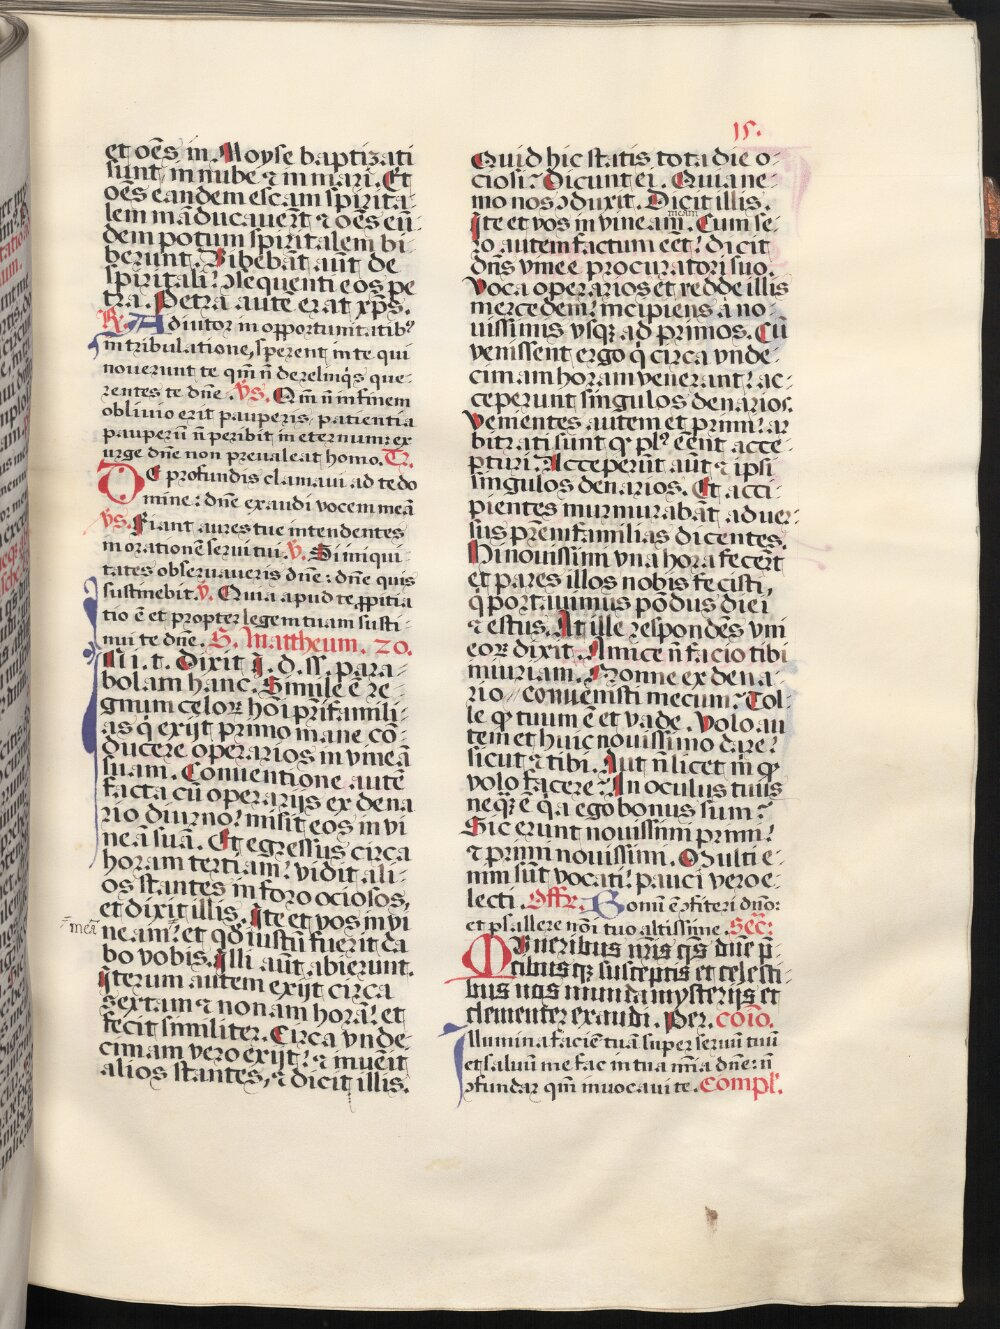 15.
et oēs in Moyse baptizati
sunt in nube ⁊ in mari. Et
oēs eandem escam spirita-
lem māducauerūt ⁊ oēs eū-
dem potum spiritalem bi-
berunt. Bibebāt aūt de
spiritali ꝯsequenti eos pe
tra. Petra autē erat xp̄s.
R̄. Adiutor in opportunitatibꝰ
in tribulatione, sperent in te qui
nouerunt te qm̄ n̄ derelinq̄s que-
rentes te dn̄e. V̄s. Qm̄ n̄ in finem
obliuio erit pauperis, patientia
pauperū n̄ peribit in eternum: ex
urge dn̄e non preualeat homo. Tr.
De profundis clamaui ad te do
mine: dn̄e exaudi vocem meā
V̄s. Fiant aures tue intendentes
in orationē serui tui. V̄. Si iniqui
tates obseruaueris dn̄e: dn̄e quis
sustinebit. V̄. Quia apud te ꝓpitia
tio ē et propter legem tuam susti-
nui te dn̄e. S. Mattheum. 20.
In i. t. Dixit I. d. ss. para-
bolam hanc. Simile ē re-
gnum celoꝝ hōi pr̄ifamili-
as q̄ exijt primo mane cō-
ducere operarios in vineā
suam. Conuentione autē
facta cū operarijs ex dena
rio diurno: misit eos in vi
neā suā. Et egressus circa
horam tertiam: vidit ali-
os stantes in foro ociosos,
et dixit illis. Ite et vos in vi
meā
neam: et qd̄ iustū fuerit da
bo vobis. Illi aūt abierunt.
Iterum autem exijt circa
sextam ⁊ nonam horā: et
fecit similiter. Circa vnde-
cimam vero exijt: ⁊ inuēit
alios stantes, ⁊ dicit illis.
Quid hic statis tota die o-
ciosi? Dicunt ei. Quia ne-
mo nos ꝯduxit. Dicit illis.
meam
Ite et vos in vineam. Cum se-
ro autem factum eēt: dicit
dn̄s vinee procuratori suo.
Voca operarios et redde illis
mercedem: incipiens a no
uissimis vsqꝫ ad primos. Cū
venissent ergo q̄ circa vnde-
cimam horam venerant: ac-
ceperunt singulos denarios.
Venientes autem et primi: ar
bitrati sunt qꝫ plꝰ eēnt acce-
pturi. Acceperūt aūt ⁊ ipsi
singulos denarios. Et acci-
pientes murmurabāt aduer-
sus pr̄emfamilias dicentes.
Hi nouissimi vna hora fecerūt
et pares illos nobis fecisti,
q̄ portauimus pōdus diei
⁊ estus. At ille respondēs vni
eoꝝ dixit. Amice n̄ facio tibi
iniuriam. Nonne ex dena-
rio conuenisti mecum? Tol-
le qꝫ tuum ē et vade. Volo au
tem et huic nouissimo dare:
sicut ⁊ tibi. Aut n̄ licet m̄ qꝫ
volo facere? An oculus tuus
neqꝫ ē q̄a ego bonus sum?
Sic erunt nouissimi primi:
⁊ primi nouissimi. Multi e-
nim sūt vocati: pauci vero e-
lecti. Offr. Bonū ē ꝯfiteri dn̄o:
et psallere nōi tuo altissime. Sec̄:
Muneribus nr̄is qs̄ dn̄e p̄-
cibus qꝫ susceptis et celesti-
bus nos munda mysterijs et
clementer exaudi. Per. Coīo.
Illumina faciē tuā super seruū tuū
et saluū me fac in tua mīa dn̄e: n̄
ꝯfundar qm̄ inuocaui te. Compl̄.